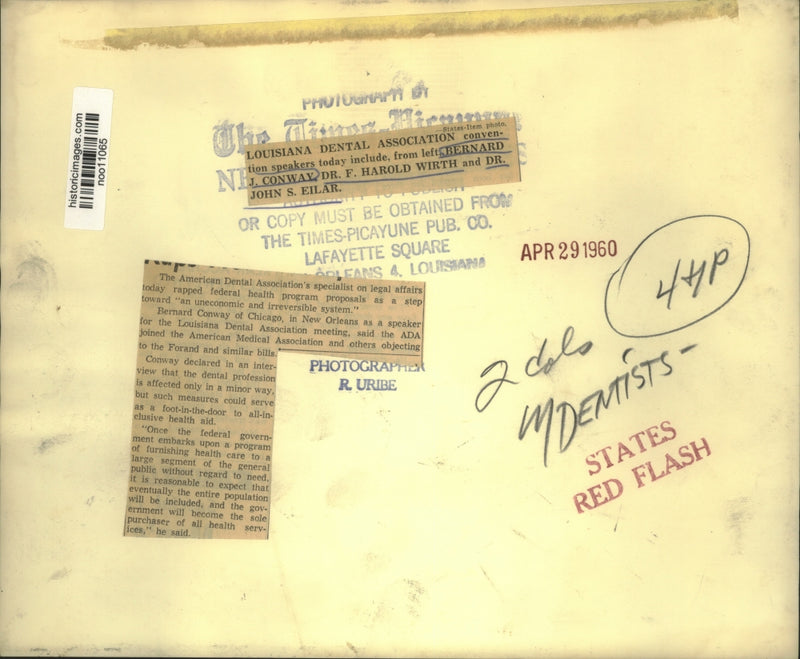 historicimages.com
noo11065
PHOTOGRAPH BY
The Times-Picayune
States-Item photo.
LOUISIANA DENTAL ASSOCIATION conven-
tion speakers today include, from left, BERNARD
J. CONWAY, DR. F. HAROLD WIRTH and DR.
JOHN S. EILAR.
TO PUBLISH
OR COPY MUST BE OBTAINED FROM
THE TIMES-PICAYUNE PUB. CO.
LAFAYETTE SQUARE
ORLEANS 4, LOUISIANA
APR 29 1960
4 4P
The American Dental Association's specialist on legal affairs
today rapped federal health program proposals as a step
toward "an uneconomic and irreversible system."
Bernard Conway of Chicago, in New Orleans as a speaker
for the Louisiana Dental Association meeting, said the ADA
joined the American Medical Association and others objecting
to the Forand and similar bills.
Conway declared in an inter-
view that the dental profession
is affected only in a minor way,
but such measures could serve
as a foot-in-the-door to all-in-
clusive health aid.
"Once the federal govern-
ment embarks upon a program
of furnishing health care to a
large segment of the general
public without regard to need,
it is reasonable to expect that
eventually the entire population
will be included, and the gov-
ernment will become the sole
purchaser of all health serv-
ices," he said.
PHOTOGRAPHER
R. URIBE
2 cols
DENTISTS-
STATES
RED FLASH